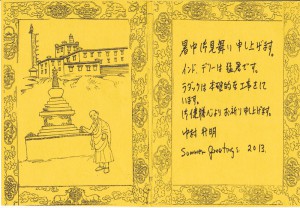 暑中御見舞い申し上げます。
インド、デリーは猛暑です。
ラダックは本格的な工事をして
います。
御健勝心よりお祈り申し上げます。
中村 行明
Summer Greetings 2013